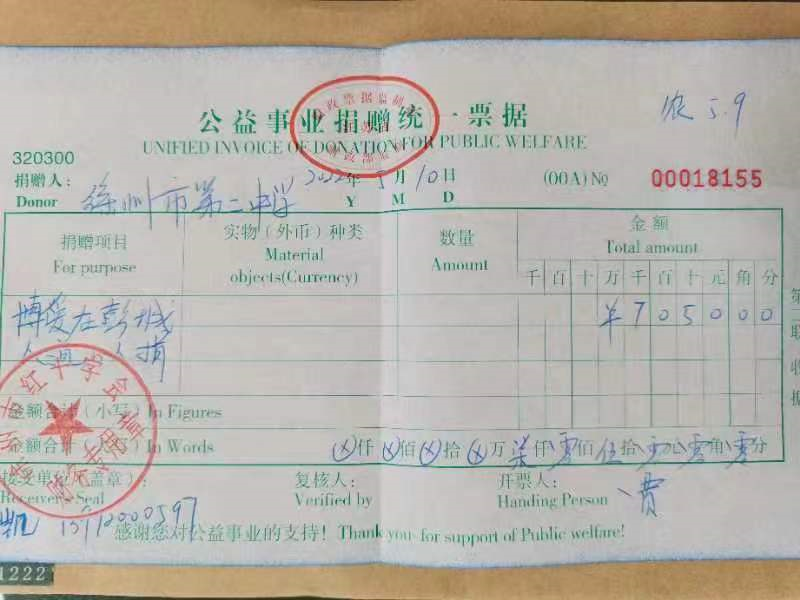 公益事业捐赠统一票据
UNIFIED INVOICE OF DONATION FOR PUBLIC WELFARE
农 5.9
320300
捐赠人: 徐州市第二中学 2022年5月10日 (00A) № 00018155
Donor Y M D
捐赠项目 实物（外币）种类 数量 金额
For purpose Material objects(Currency) Amount Total amount
千百十万千百十元角分
博爱在彭城 ¥705000
人道 人捐
金额合计（小写）In Figures
金额合计 In Words ⊗仟⊗佰⊗拾⊗万柒仟零佰伍拾零元零角零分
接受单位（盖章）: 复核人: 开票人:
Receiver's Seal Verified by Handing Person 费
感谢您对公益事业的支持！Thank you for support of Public welfare!
第二联 收据
红十字会
1222